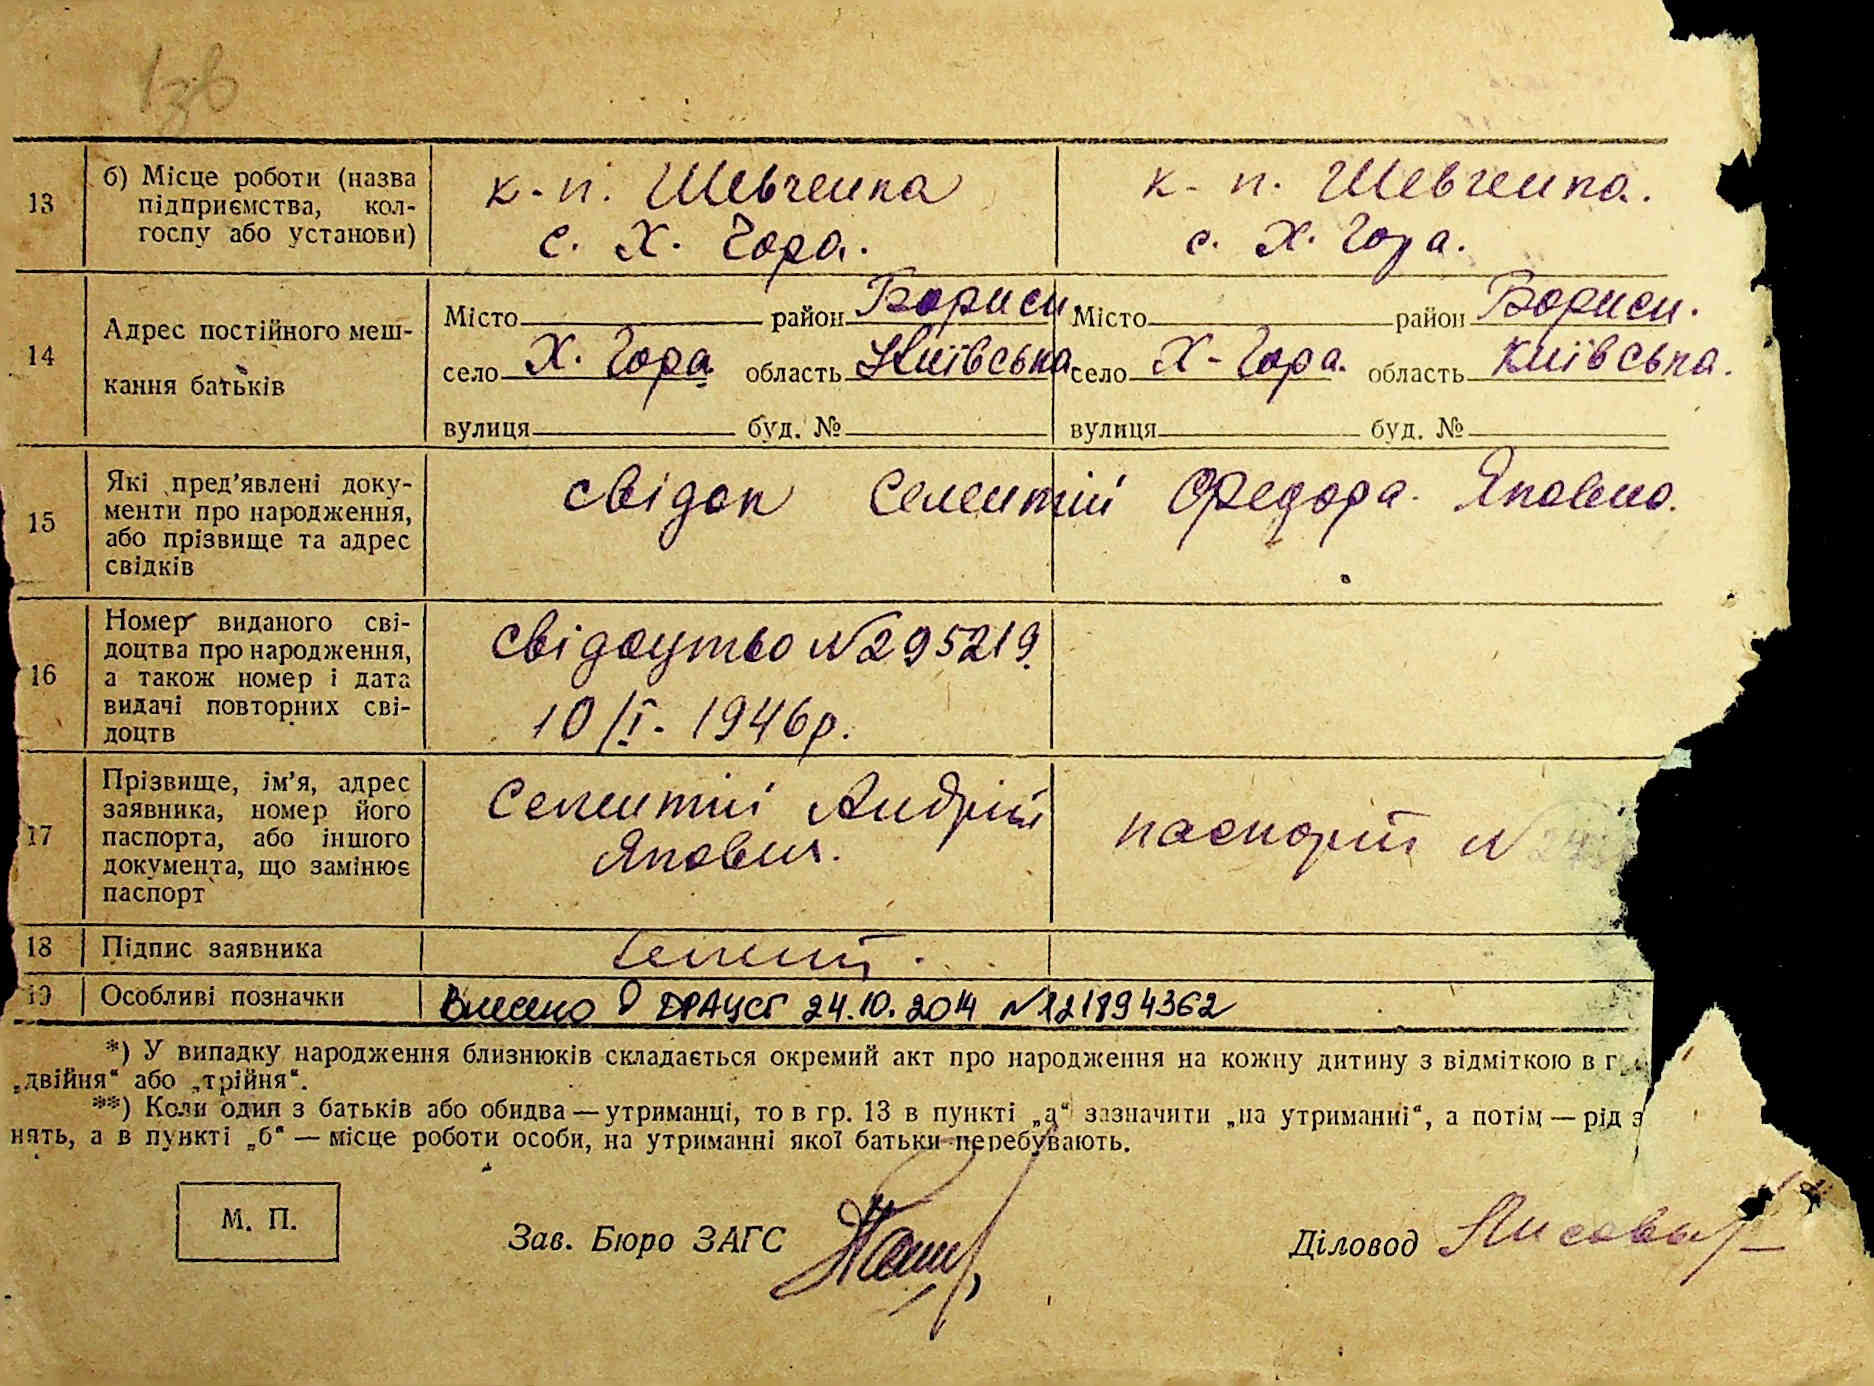 13 б) Місце роботи (назва підприємства, кол-госпу або установи)
к-п. Шевченка
с. Х. Гора.
к-п. Шевченка.
с. Х. Гора.
14 Адрес постійного меш-
кання батьків
Місто район Бориси
село Х. Гора область Київська
вулиця буд. №
Місто район Бориси.
село Х-Гора. область Київська.
вулиця буд. №
15 Які пред’явлені доку-
менти про народження,
або прізвище та адрес
свідків
свідок Селентій Федора Яковлю.
16 Номер виданого сві-
доцтва про народження,
а також номер і дата
видачі повторних сві-
доцтв
свідоцтво №295219.
10/I. 1946р.
17 Прізвище, ім’я, адрес
заявника, номер його
паспорта, або іншого
документа, що замінює
паспорт
Селентій Андрій
Яковлич.
паспорт №
18 Підпис заявника
19 Особливі позначки
Внесено в ДРАЦСГ 24.10.2014 №121894362
*) У випадку народження близнюків складається окремий акт про народження на кожну дитину з відміткою в г
„двійня“ або „трійня“.
**) Коли один з батьків або обидва — утриманці, то в гр. 13 в пункті „а“ зазначити „на утриманні“, а потім — рід з
нять, а в пункті „б“ — місце роботи особи, на утриманні якої батьки перебувають.
М. П.
Зав. Бюро ЗАГС
Діловод